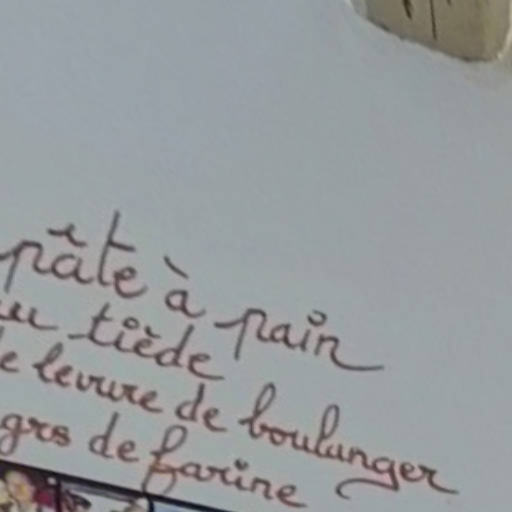 pâte à pain
tiède
levure de boulanger
grs de farine